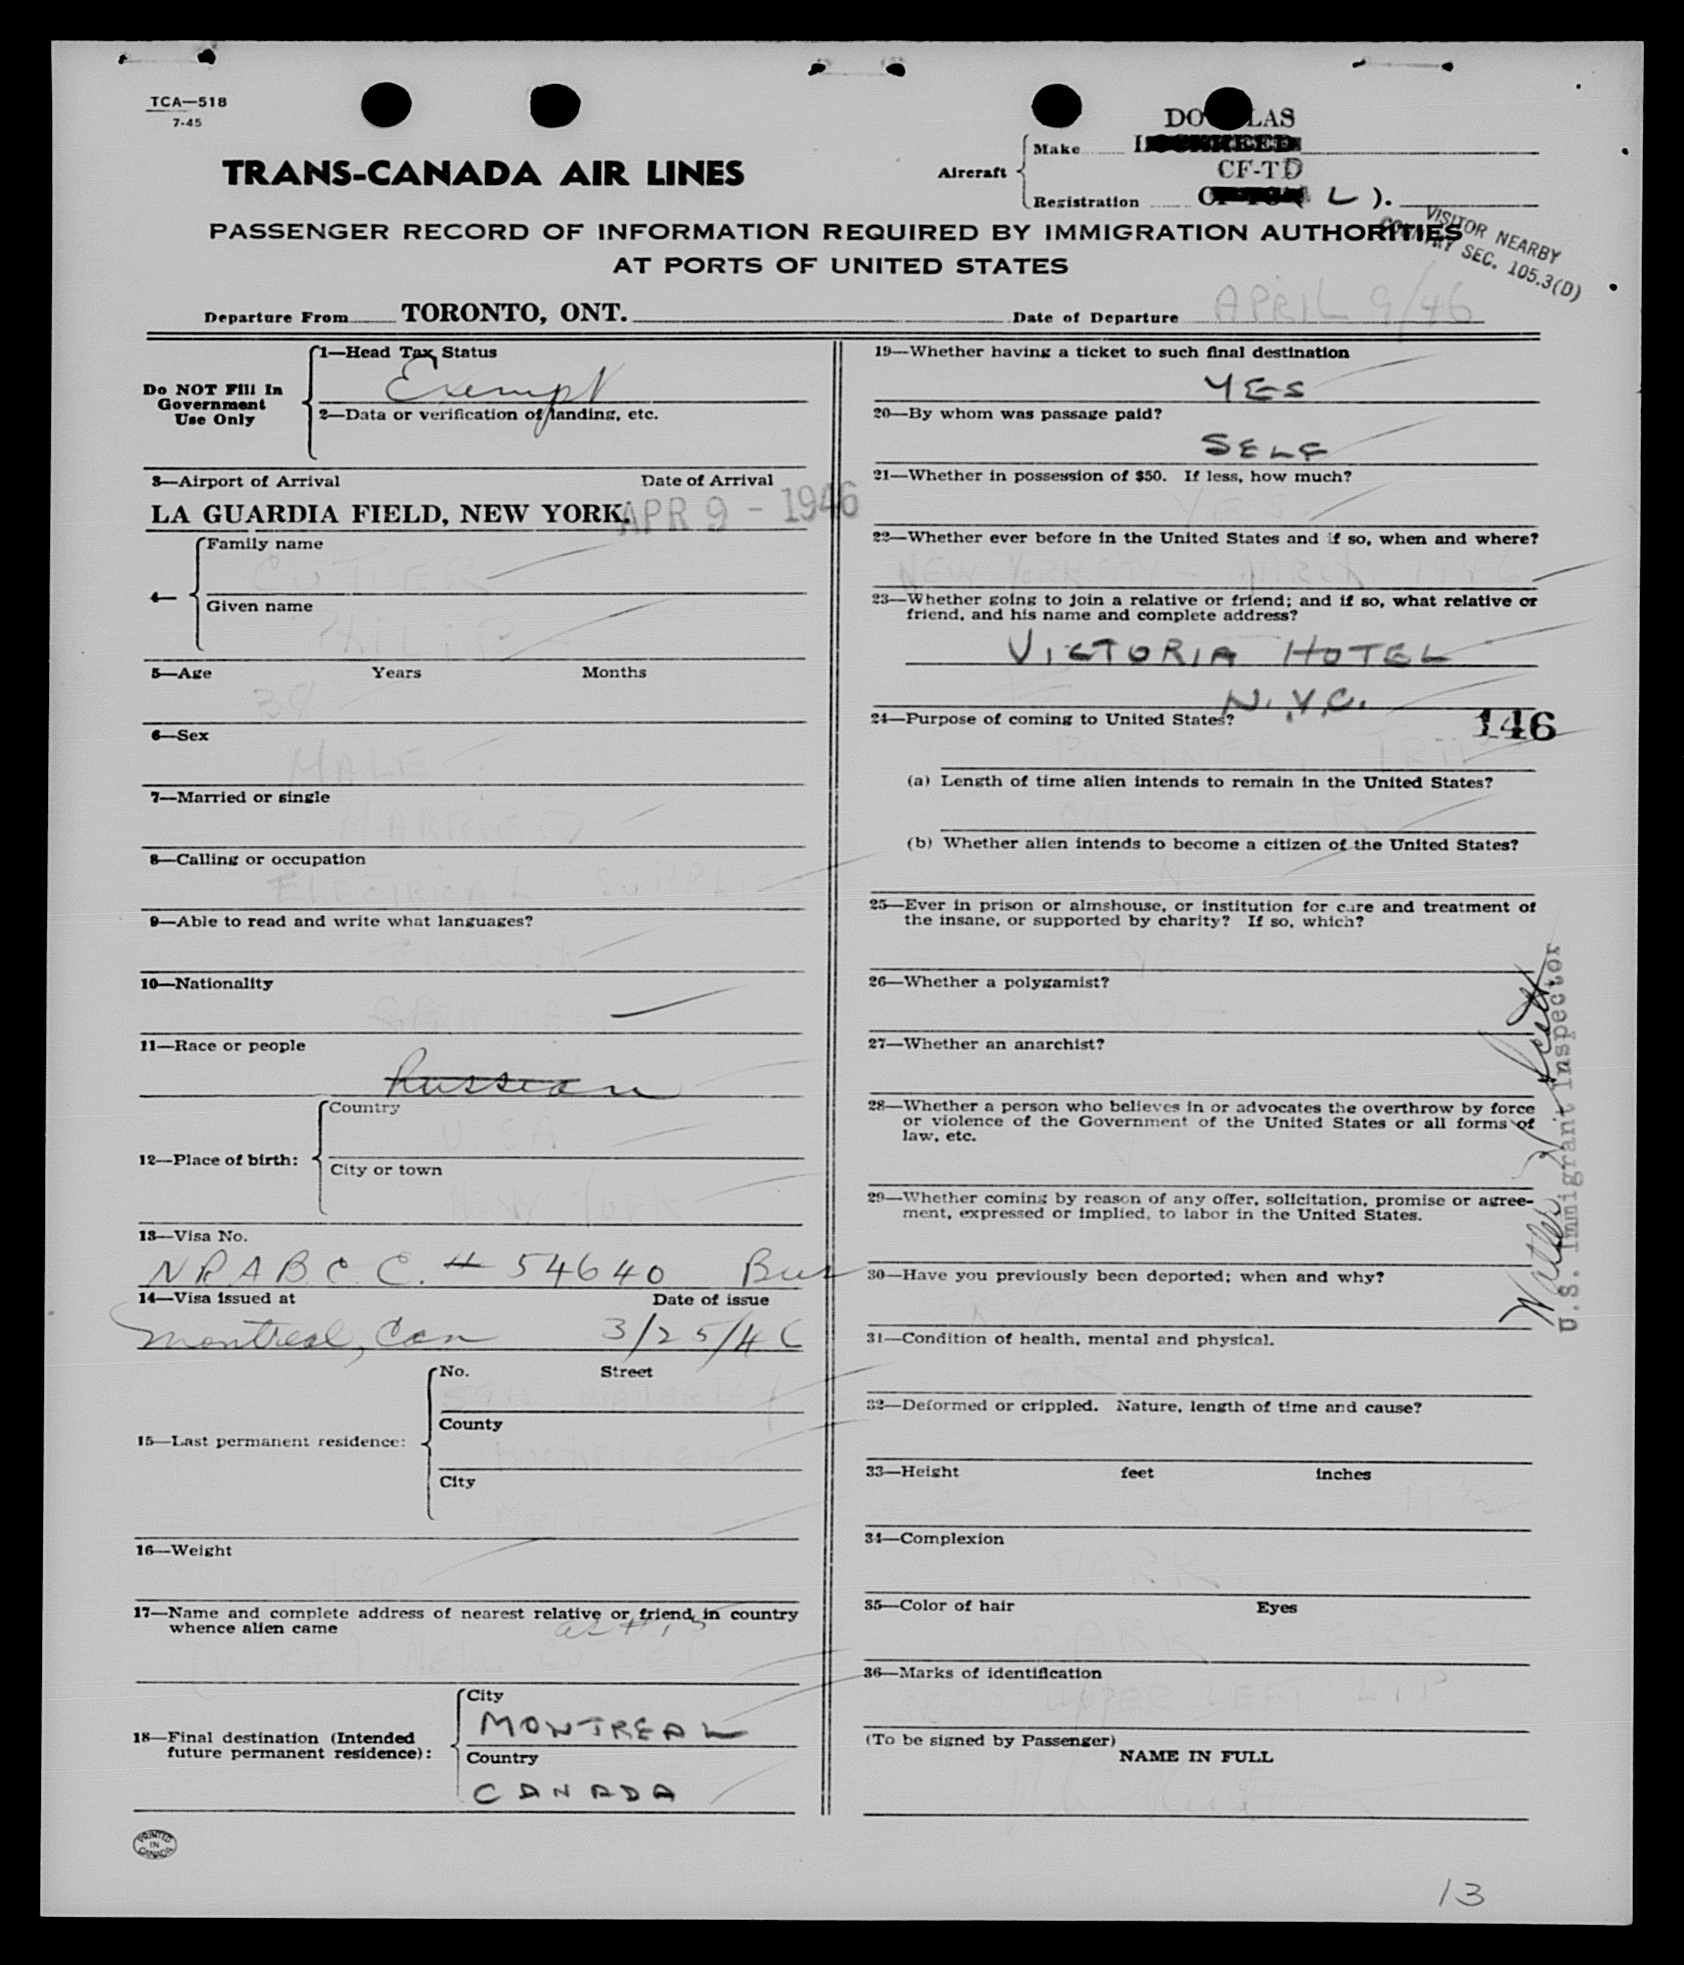 TCA—518
7-45
DOUGLAS
Aircraft
Make
TRANS-CANADA AIR LINES
CF-TD
Registration L ).
PASSENGER RECORD OF INFORMATION REQUIRED BY IMMIGRATION AUTHORITIES
AT PORTS OF UNITED STATES
VISITOR NEARBY
COUNTRY SEC. 105.3(D)
Departure From TORONTO, ONT. Date of Departure APRIL 9/46
Do NOT Fill In
Government
Use Only
1—Head Tax Status
Exempt
2—Data or verification of landing, etc.
3—Airport of Arrival Date of Arrival
LA GUARDIA FIELD, NEW YORK. APR 9 - 1946
4—
Family name
CUTLER
Given name
PHILIP
5—Age Years Months
6—Sex
MALE
7—Married or single
MARRIED
8—Calling or occupation
ELECTRICAL
9—Able to read and write what languages?
10—Nationality
11—Race or people
Russian
12—Place of birth:
Country
USA
City or town
New York
13—Visa No.
NRABCC. # 54640 Bus
14—Visa issued at Date of issue
Montreal, Can 3/25/46
15—Last permanent residence:
No. Street
County
City
16—Weight
17—Name and complete address of nearest relative or friend in country
whence alien came
as # 15
18—Final destination (Intended
future permanent residence):
City
MONTREAL
Country
CANADA
PRINTED
IN
CANADA
19—Whether having a ticket to such final destination
YES
20—By whom was passage paid?
SELF
21—Whether in possession of $50. If less, how much?
YES
22—Whether ever before in the United States and if so, when and where?
NEW YORK CITY - MARCH 1946
23—Whether going to join a relative or friend; and if so, what relative or
friend, and his name and complete address?
VICTORIA HOTEL
N.Y.C.
24—Purpose of coming to United States?
146
BUSINESS TRIP
(a) Length of time alien intends to remain in the United States?
(b) Whether alien intends to become a citizen of the United States?
25—Ever in prison or almshouse, or institution for care and treatment of
the insane, or supported by charity? If so, which?
26—Whether a polygamist?
27—Whether an anarchist?
28—Whether a person who believes in or advocates the overthrow by force
or violence of the Government of the United States or all forms of
law, etc.
29—Whether coming by reason of any offer, solicitation, promise or agree-
ment, expressed or implied, to labor in the United States.
30—Have you previously been deported; when and why?
31—Condition of health, mental and physical.
32—Deformed or crippled. Nature, length of time and cause?
33—Height feet inches
34—Complexion
35—Color of hair Eyes
36—Marks of identification
UPPER LEFT LIP
(To be signed by Passenger)
NAME IN FULL
U.S. Immigrant Inspector
13